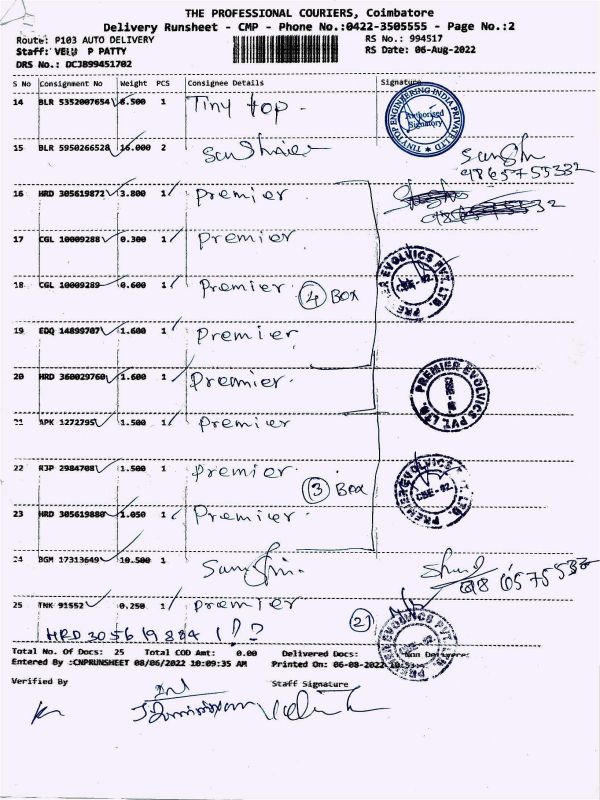 THE PROFESSIONAL COURIERS, Coimbatore
Delivery Runsheet - CMP - Phone No.:0422-3505555 - Page No.:2
Route: P103 AUTO DELIVERY RS No.: 994517
Staff: VELU P PATTY RS Date: 06-Aug-2022
DRS No.: DCJB99451702
S No Consignment No Weight PCS Consignee Details Signature
14 BLR 5352007654 6.500 1 Tiny top.
TINYTOP ENGINEERING INDIA PRIVATE LTD Authorised Signatory
15 BLR 5950266528 16.000 2
9865755332
16 HRD 305619872 3.800 1 Premier
17 CGL 10009288 0.300 1 Premier
18 CGL 10009289 0.600 1 Premier 4 Box
PREMIER EVOLVICS PVT. LTD. CBE-02.
19 EDQ 14899707 1.600 1 Premier
20 HRD 360029760 1.600 1 Premier
PREMIER EVOLVICS PVT. LTD.
21 APK 1272795 1.500 1 Premier
22 RJP 2984708 1.500 1 Premier 3 Box
PREMIER EVOLVICS PVT. LTD. CBE-02.
23 HRD 305619880 1.050 1 Premier
24 BGM 17313649 10.500 1
25 TNK 91552 0.250 1 Premier 2
HRD 305619884 1
PREMIER EVOLVICS PVT. LTD.
Total No. Of Docs: 25 Total COD Amt: 0.00 Delivered Docs: Non Delivered
Entered By :CNPRUNSHEET 08/06/2022 10:09:35 AM Printed On: 06-08-2022
Verified By Staff Signature